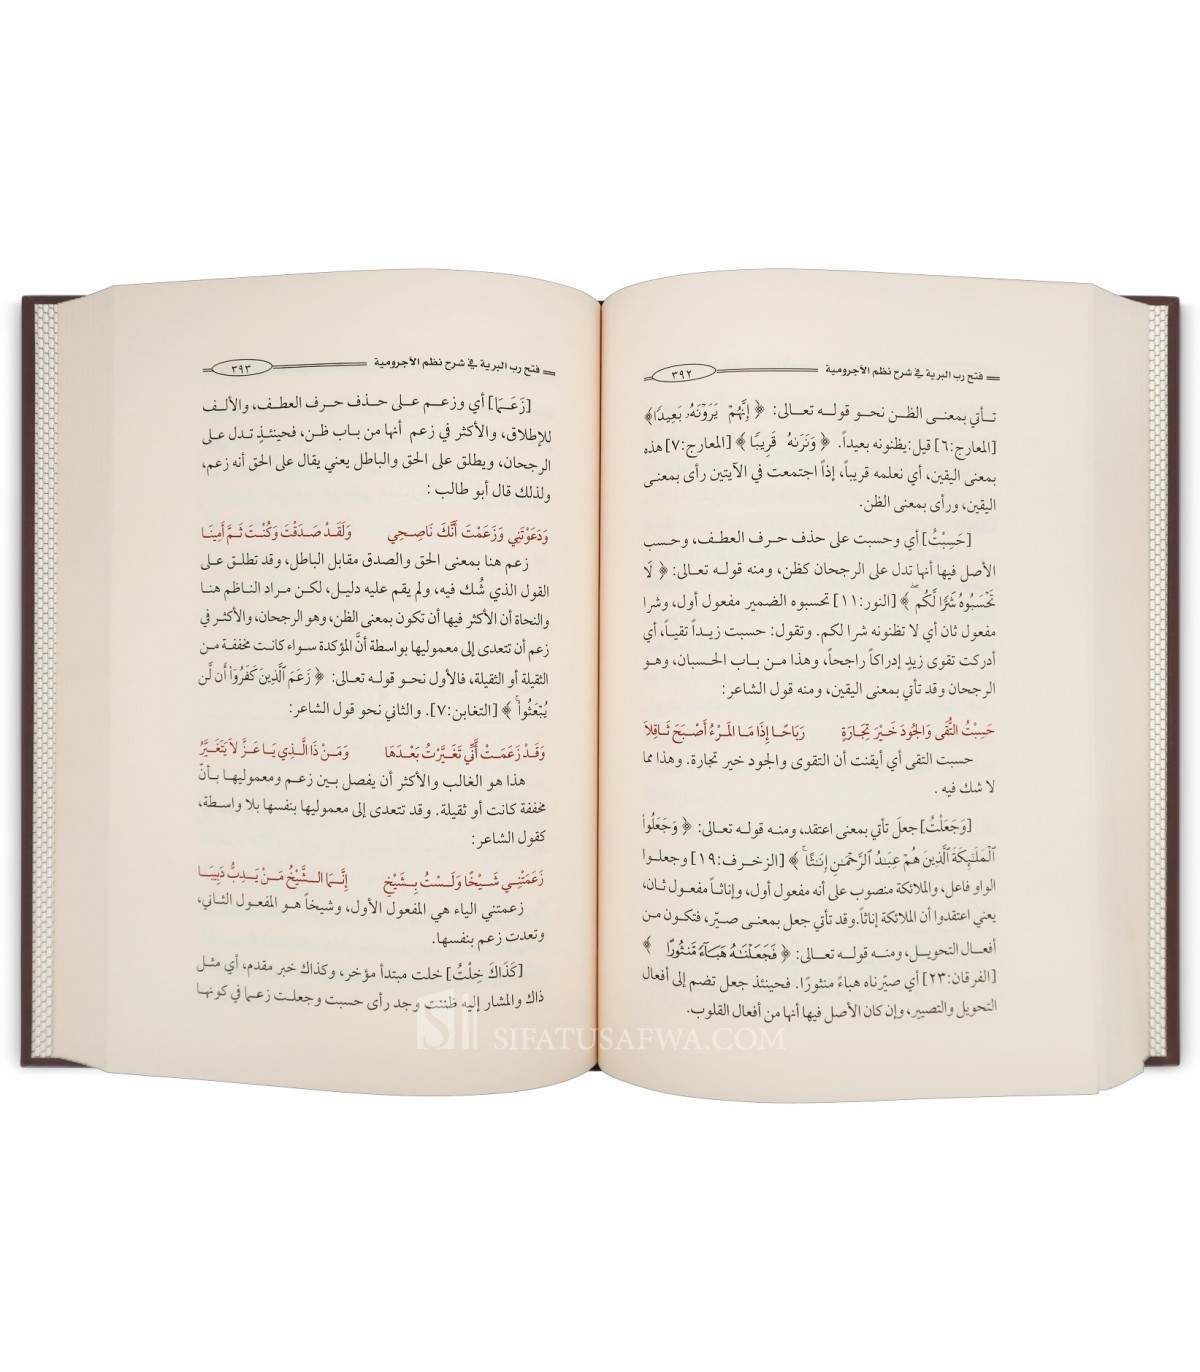 فتح رب البرية في شرح نظم الآجرومية
٣٩٢
تأتي بمعنى الظن نحو قوله تعالى: ﴿ إِنَّهُمْ يَرَوْنَهُۥ بَعِيدًا ﴾
[المعارج:٦] قيل: يظنونه بعيداً. ﴿ وَنَرَىٰهُ قَرِيبًا ﴾ [المعارج:٧] هذه
بمعنى اليقين، أي نعلمه قريباً، إذاً اجتمعت في الآيتين رأى بمعنى
اليقين، ورأى بمعنى الظن.
[حَسِبْتُ] أي وحسبت على حذف حرف العطف، وحسب
الأصل فيها أنها تدل على الرجحان كظن، ومنه قوله تعالى: ﴿ لَا
تَحْسَبُوهُ شَرًّا لَّكُم ۖ ﴾ [النور:١١] تحسبوه الضمير مفعول أول، وشرا
مفعول ثان أي لا تظنونه شرا لكم. وتقول: حسبت زيداً تقياً، أي
أدركت تقوى زيدٍ إدراكاً راجحاً، وهذا من باب الحسبان، وهو
الرجحان وقد تأتي بمعنى اليقين، ومنه قول الشاعر:
حَسِبْتُ التُّقَى وَالْجُودَ خَيْرَ تِجَارَةٍ رَبَاحًا إِذَا مَا الْمَرْءُ أَصْبَحَ ثَاقِلاَ
حسبت التقى أي أيقنت أن التقوى والجود خير تجارة. وهذا مما
لا شك فيه .
[وَجَعَلْتُ] جعلَ تأتي بمعنى اعتقد، ومنه قوله تعالى: ﴿ وَجَعَلُوا۟
ٱلْمَلَٰٓئِكَةَ ٱلَّذِينَ هُمْ عِبَٰدُ ٱلرَّحْمَٰنِ إِنَٰثًا ۚ ﴾ [الزخرف:١٩] وجعلوا
الواو فاعل، والملائكة منصوب على أنه مفعول أول، وإناثاً مفعول ثان،
يعني اعتقدوا أن الملائكة إناثاً. وقد تأتي جعل بمعنى صيّر، فتكون من
أفعال التحويل، ومنه قوله تعالى: ﴿ فَجَعَلْنَٰهُ هَبَآءً مَّنثُورًا ﴾
[الفرقان:٢٣] أي صيّرناه هباءً منثورًا. فحينئذ جعل تضم إلى أفعال
التحويل والتصيير، وإن كان الأصل فيها أنها من أفعال القلوب.
فتح رب البرية في شرح نظم الآجرومية
٣٩٣
[زَعَمَا] أي وزعم على حذف حرف العطف، والألف
للإطلاق، والأكثر في زعم أنها من باب ظن، فحينئذٍ تدل على
الرجحان، ويطلق على الحق والباطل يعني يقال على الحق أنه زعم،
ولذلك قال أبو طالب :
وَدَعَوْتَنِي وَزَعَمْتَ أَنَّكَ نَاصِحِي وَلَقَدْ صَدَقْتَ وَكُنْتَ ثَمَّ أَمِينَا
زعم هنا بمعنى الحق والصدق مقابل الباطل، وقد تطلق على
القول الذي شُك فيه، ولم يقم عليه دليل، لكن مراد الناظم هنا
والنحاة أن الأكثر فيها أن تكون بمعنى الظن، وهو الرجحان، والأكثر في
زعم أن تتعدى إلى معموليها بواسطة أنَّ المؤكدة سواء كانت مخففة من
الثقيلة أو الثقيلة، فالأول نحو قوله تعالى: ﴿ زَعَمَ ٱلَّذِينَ كَفَرُوٓا۟ أَن لَّن
يُبْعَثُوا۟ ۚ ﴾ [التغابن:٧]. والثاني نحو قول الشاعر:
وَقَدْ زَعَمَتْ أَنِّي تَغَيَّرْتُ بَعْدَهَا وَمَنْ ذَا الَّذِي يَا عَزَّ لاَ يَتَغَيَّرُ
هذا هو الغالب والأكثر أن يفصل بين زعم ومعموليها بأنّ
مخففة كانت أو ثقيلة. وقد تتعدى إلى معموليها بنفسها بلا واسطة،
كقول الشاعر:
زَعَمَتْنِي شَيْخًا وَلَسْتُ بِشَيْخٍ إِنَّمَا الشَّيْخُ مَنْ يَدِبُّ دَبِيبَا
زعمتني الياء هي المفعول الأول، وشيخاً هو المفعول الثاني،
وتعدت زعم بنفسها.
[كَذَاكَ خِلْتُ] خلت مبتدأ مؤخر، وكذاك خبر مقدم، أي مثل
ذاك والمشار إليه ظننت وجد رأى حسبت وجعلت زعما في كونها
SIFATUSAFWA.COM